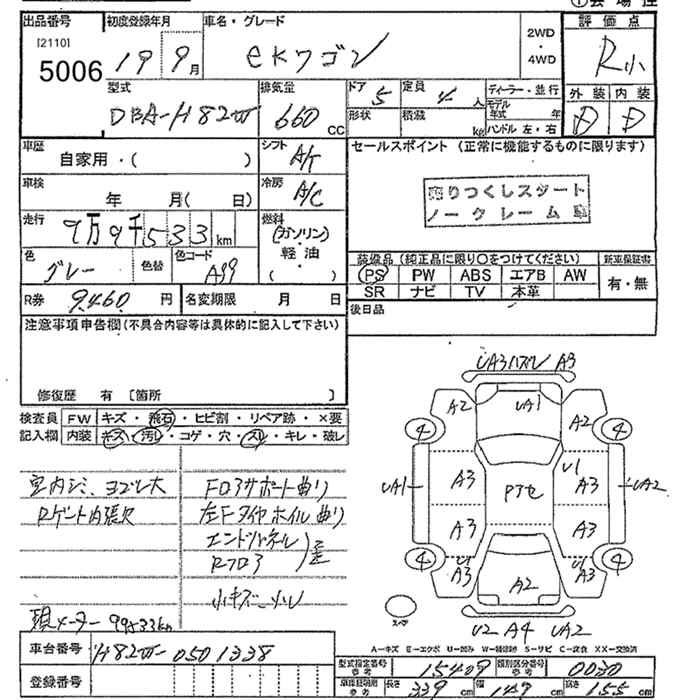 ① 会 場 控
出品番号
[2110]
5006
初度登録年月
19 9月
車名・グレード
eKワゴン
2WD
・
4WD
評価点
R小
型式
DBA-H82W
排気量
660 CC
ドア 5
定員 4 人
形状
積載 kg
ディーラー・並行
モデル年式 年
ハンドル 左・右
外装 内装
D D
車歴
自家用・( )
シフト
A/T
セールスポイント (正常に機能するものに限ります)
売りつくしスタート
ノークレーム
車検
年 月( 日)
冷房
A/C
走行
9万9千533km
燃料
(ガソリン)
・
軽油
・
( )
色
グレー
色替
色コード
A99
装備品 (純正品に限り○をつけてください)
新車保証書
PS PW ABS エアB AW
SR ナビ TV 本革
有・無
R券 9,460 円
名変期限 月 日
後日品
注意事項申告欄(不具合内容等は具体的に記入して下さい)
修復歴 有 〔箇所 〕
検査員 FW キズ・飛石・ヒビ割・リペア跡・×要
記入欄 内装 キズ・汚レ・コゲ・穴・スレ・キレ・破レ
室内シミ、ヨゴレ大
Rゲート内張欠
Fロアサポート曲り
左Fタイヤホイル曲り
エンドパネル
Rフロア
歪
小キズ・凹
現メーター 99533km
UA3ハズレ A3
A2 UA1 A2
4 4
UA1 A3 Pアセ U1 A3 UA2
A3 A3
4 4
U1 A3 A2 U1 A3
スペア
U2 A4 UA2
A−キズ E−エクボ U−凹み W−補修跡 S−サビ C−腐食 XX−交換済
車台番号 H82W-0501338
登録番号
型式指定番号 参考 15409
類別区分番号 参考 0030
車検証記載 参考 長さ 339 cm 幅 147 cm 高さ 155 cm